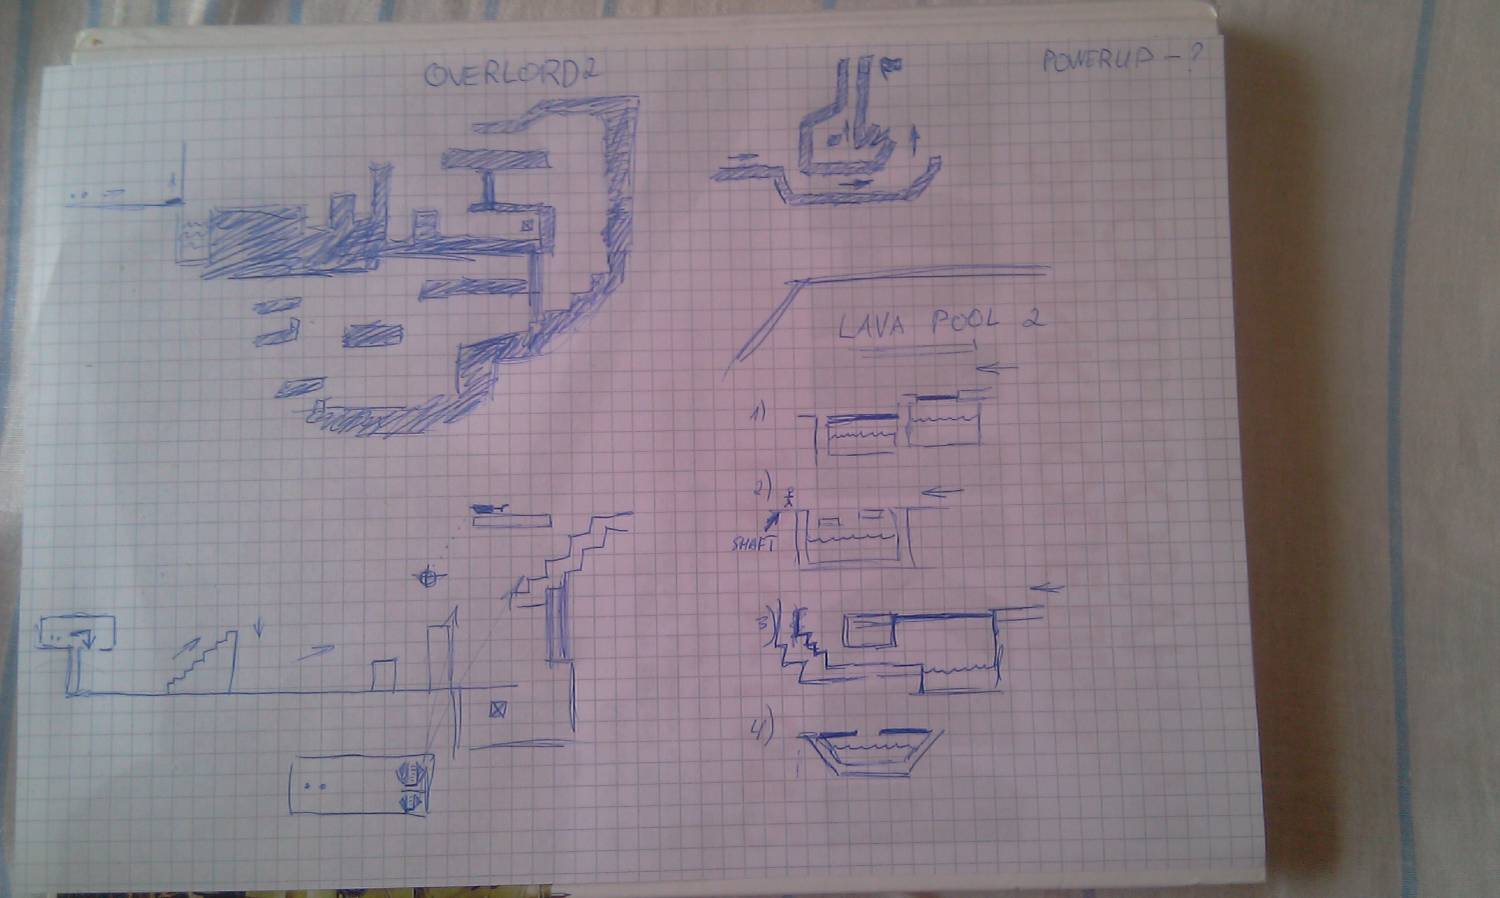 OVERLORD2
POWERUP - ?
LAVA POOL 2
1)
2)
SHAFT
3)
4)